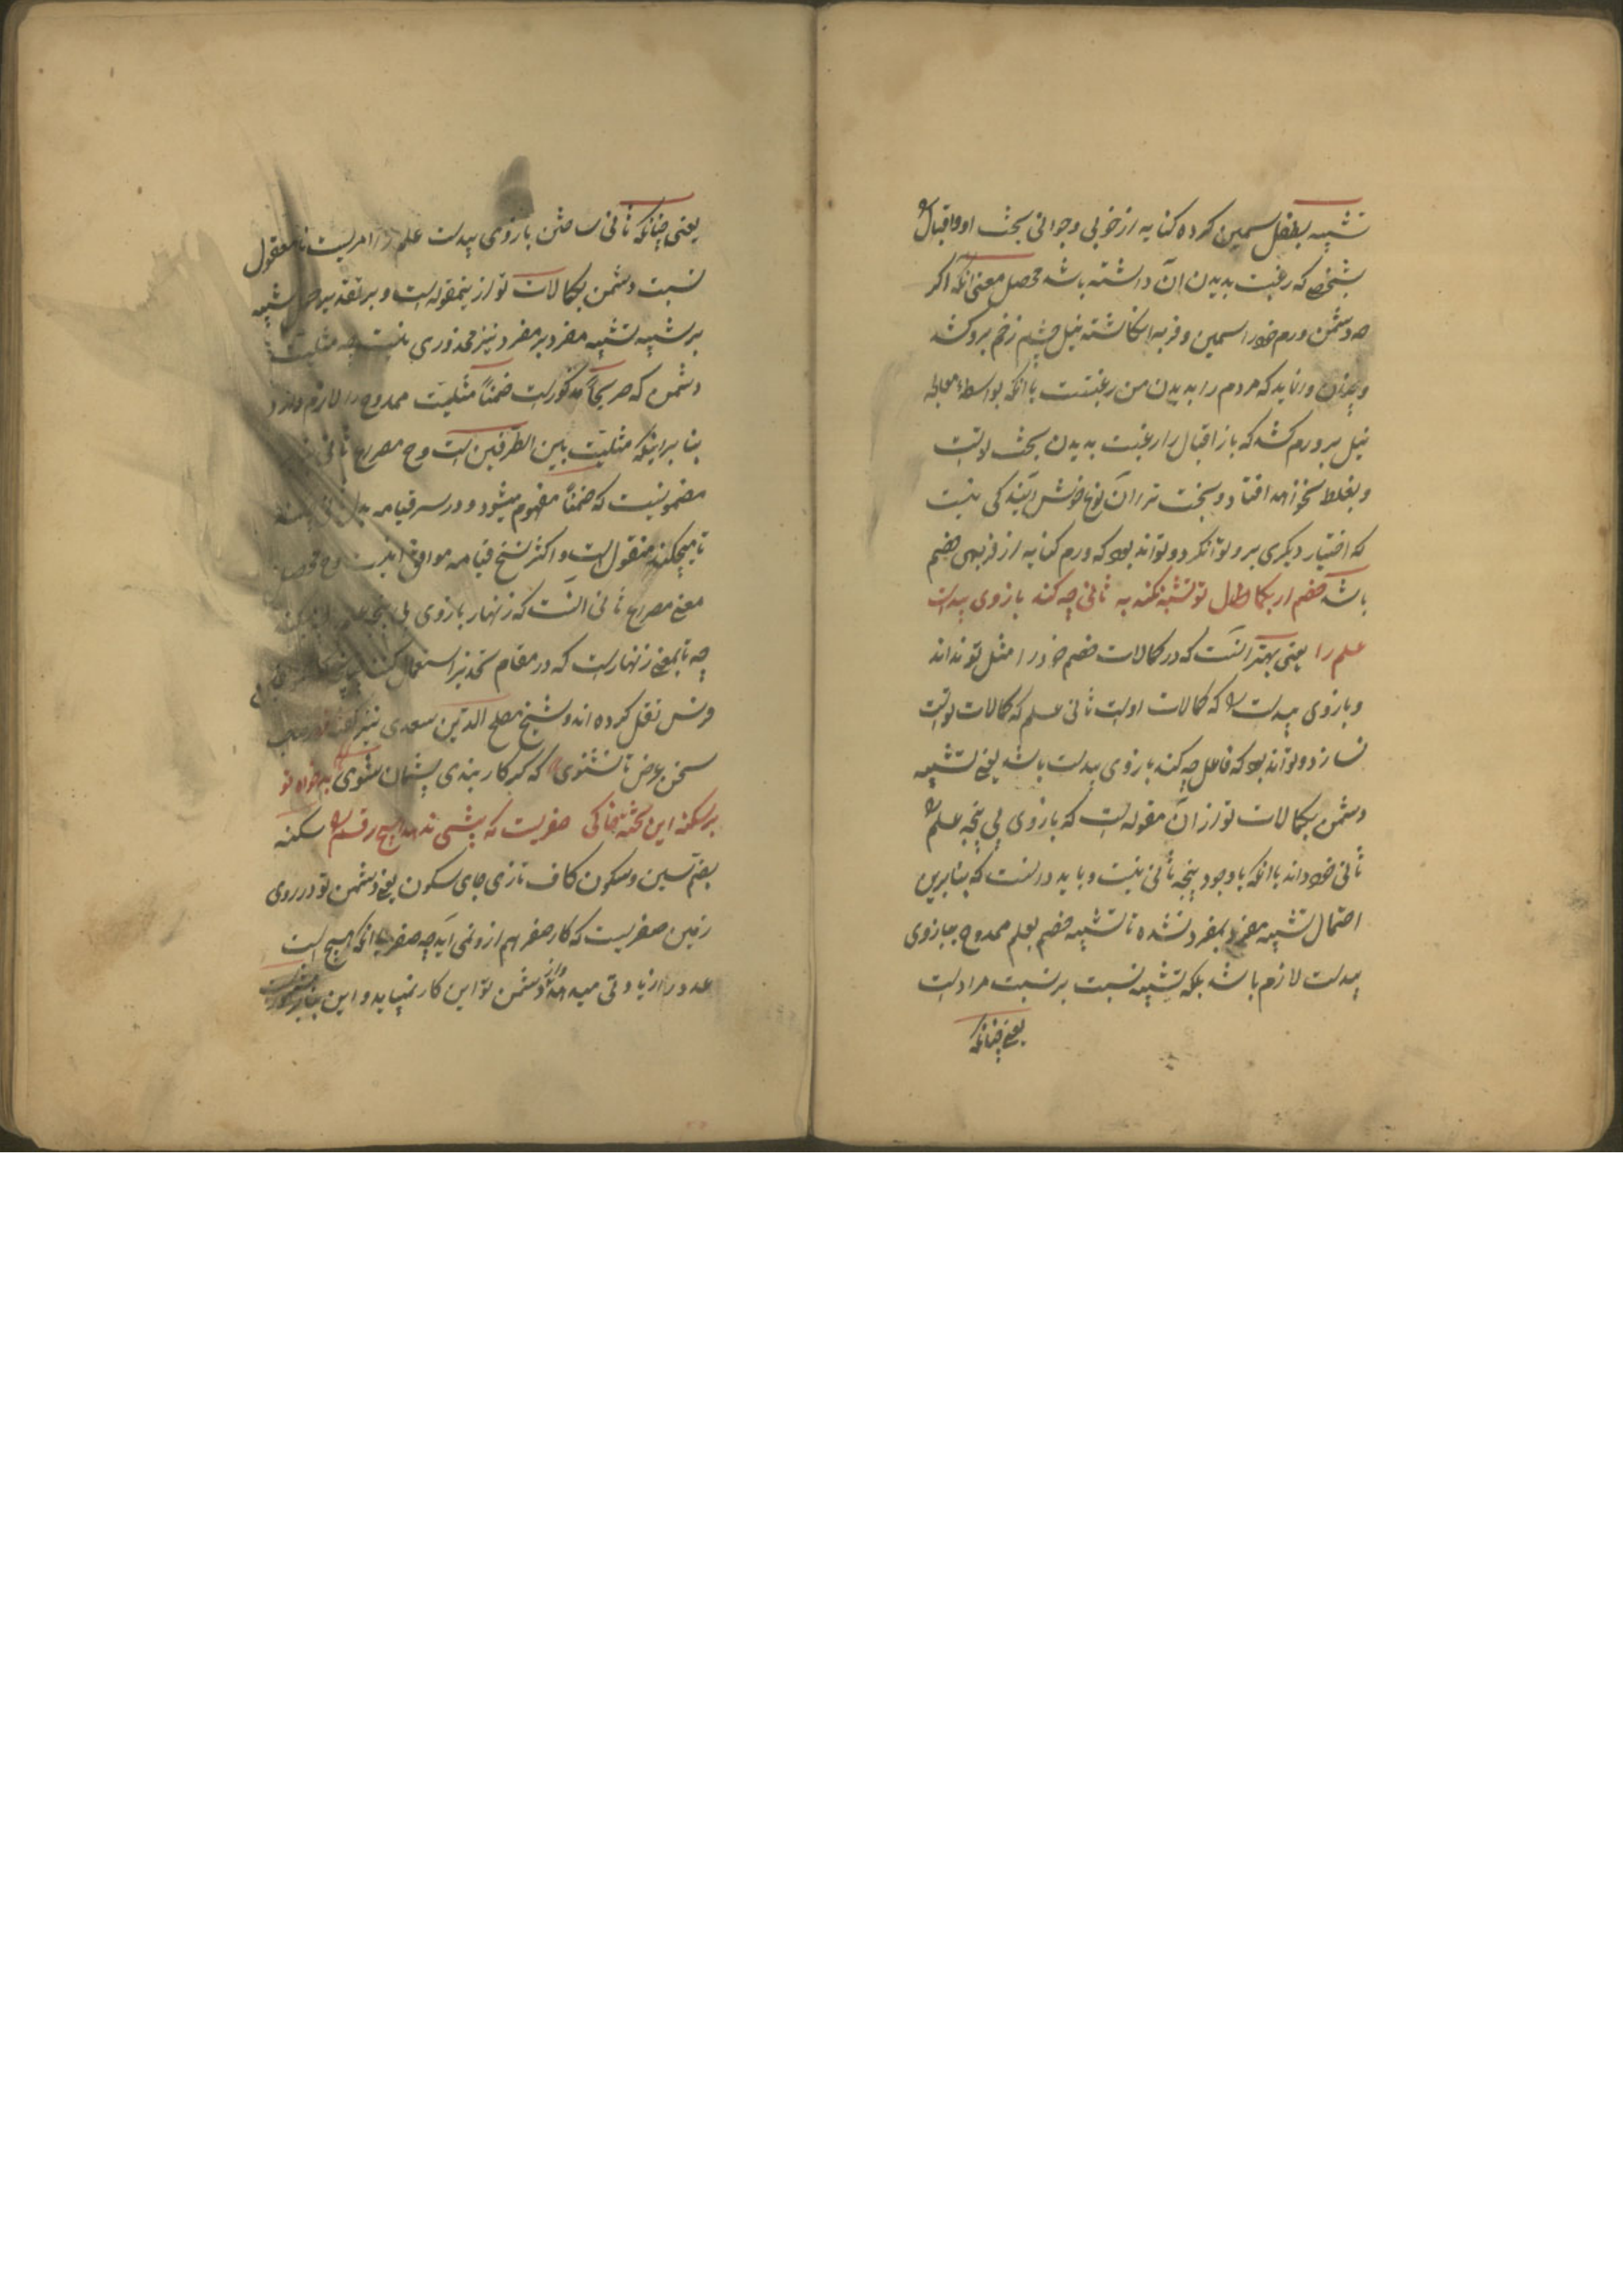 تشبیه بفضل سمین کرده کنایه از خوبی و جوانی بخت او و اقبال را
بشخصی که رغبت بدیدن آن داشته باشد محصل معنی آنکه اگر
چه دشمن ورم خود را سمین و فربه انگاشته نیل چشم زخم برو کشد
و چنان وا نماید که مردم را بدیدن من رغبتست با آنکه بواسطهٔ معالجه
نیل بر ورم کشد که باز اقبال را رغبت بدیدن بخت تو است
و بغلط نخواهد افتاد و بخت ترا آن نوع خوش آیندگی نیست
که اختیار دیگری برو تواند کرد و تواند بود که ورم کنایه از فربهی خصم
باشد خصم ار بکمال تو تشبه نکند به ثانی چه کند بازوی بیدست
علم را یعنی بهتر آنست که در کمالات خصم خود را مثل تو نداند
و بازوی بیدست را که کمالات اوست ثانی علم که کمالات تو است
نسازد و تواند بود که فاعل چه کند بازوی بیدست باشد یعنی تشبیه
دشمن بکمالات تو از آن مقوله است که بازوی بی پنجه علم را
ثانی خود داند با آنکه با وجود پنجه ثانی نیست و باید دانست که بنابرین
احتمال تشبیه مفرد بمفرد نشده تا تشبیه خصم بعلم ممدوح ببازوی
بیدست لازم باشد بلکه تشبیه نسبت بر نسبت مراد است
یعنی چنانکه
یعنی چنانکه ثانی ساختن بازوی بیدست علم را امریست نامعقول
نسبت دشمن بکمالات تو ازینمقوله است و بر تقدیر حمل تشبیه
بر تشبیه تشبیه مفرد بر مفرد نیز محذوری نیست چه مثلیت
دشمن که صریحاً مذکور است ضمناً مثلیت ممدوح را لازم دارد
بنا بر اینکه مثلیت بین الطرفین است و ح مصراع ثانی
مضمونیست که ضمناً مفهوم میشود و در سرقیامه بدل
تا هیچکند منقول است و اکثر نسخ قیامه موافق اینست و ح محصل
معنی مصراع ثانی آنست که زنهار بازوی بی پنجه
چه تا بمعنی زنهار است که در مقام تحذیر استعمال کنند چنانچه
فرس نقل کرده اند و شیخ مصلح الدین سعدی نیز گفته
سخن عرض تا نشنوی که گر کار بندی پشیمان شوی بدخواه تو
بر سکنه این تخته خاکی صفریست که بیشی ندهد هیچ رقم را سکنه
بضم سین و سکون کاف تازی جای سکون یعنی دشمن تو در روی
زمین صفریست که کار صفر هم ازو نمی آید چه صفر با آنکه هیچ است
عدد را زیادتی میدهد و از دشمن تو این کار نمیآید و این بنابر